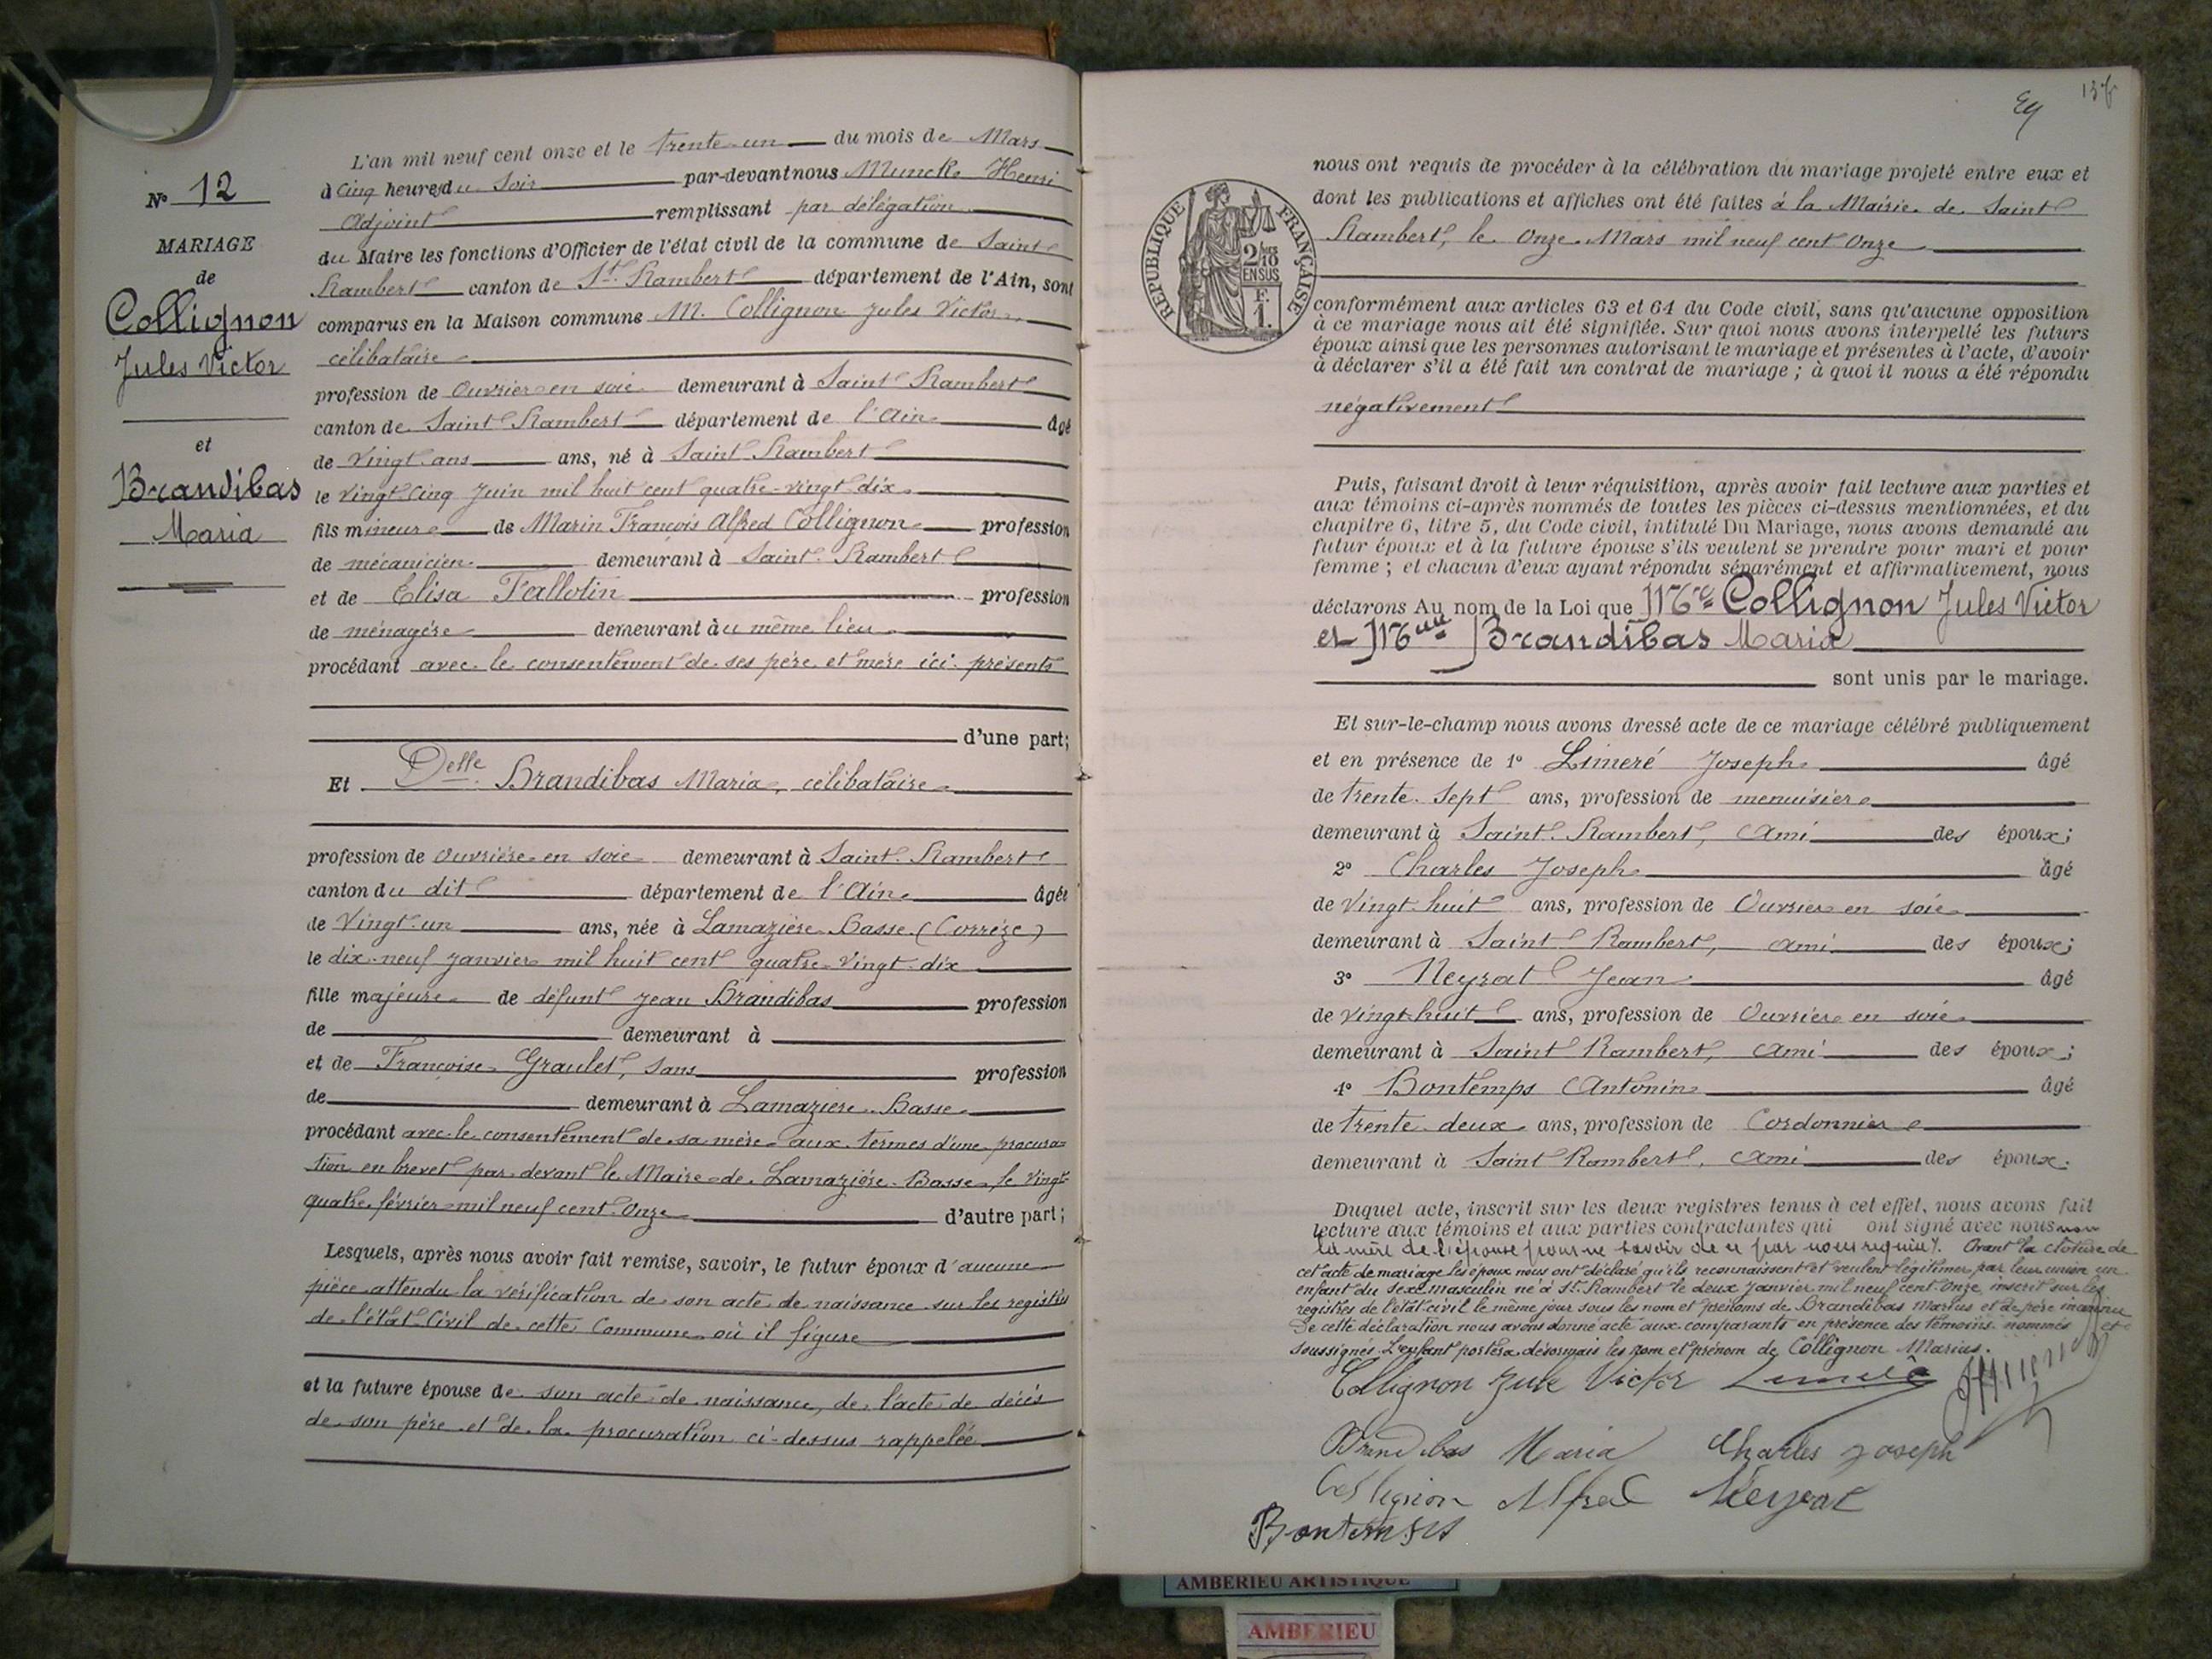 N° 12
MARIAGE
de
Collignon
Jules Victor
et
Brandibas
Maria
L'an mil neuf cent onze et le trente-un du mois de Mars
à cinq heures du soir par-devant nous Munck Henri
adjoint remplissant par délégation
du Maire les fonctions d'Officier de l'état civil de la commune de Saint
Rambert canton de St. Rambert département de l'Ain, sont
comparus en la Maison commune M. Collignon Jules Victor,
célibataire
profession de Ouvrier en soie demeurant à Saint Rambert
canton de Saint Rambert département de l'Ain âgé
de vingt ans ans, né à Saint Rambert
le vingt cinq Juin mil huit cent quatre-vingt dix
fils mineur de Marin François Alfred Collignon profession
de mécanicien demeurant à Saint-Rambert
et de Elisa Fallotin profession
de ménagère demeurant àu même lieu
procédant avec le consentement de ses père et mère ici présents
d'une part;
Et Delle Brandibas Maria, célibataire
profession de Ouvrière en soie demeurant à Saint-Rambert
canton du dit département de l'Ain âgée
de Vingt-un ans, née à Lamazière-Basse (Corrèze)
le dix-neuf janvier mil huit cent quatre-vingt-dix
fille majeure de défunt Jean Brandibas profession
de demeurant à
et de Françoise Graulet, sans profession
de demeurant à Lamazière-Basse
procédant avec le consentement de sa mère aux termes d'une procura=
tion en brevet par devant le Maire de Lamazière-Basse, le vingt-
quatre février mil neuf cent onze d'autre part;
Lesquels, après nous avoir fait remise, savoir, le futur époux d'aucune
pièce attendu la vérification de son acte de naissance sur les registres
de l'état-Civil de cette Commune où il figure
et la future épouse de son acte de naissance, de l'acte de décès
de son père et de la procuration ci-dessus rappelée
nous ont requis de procéder à la célébration du mariage projeté entre eux et
dont les publications et affiches ont été faites à la Mairie de Saint
Rambert, le onze Mars mil neuf cent onze
RÉPUBLIQUE FRANÇAISE
2/10 EN SUS
F.
1.
conformément aux articles 63 et 64 du Code civil, sans qu'aucune opposition
à ce mariage nous ait été signifiée. Sur quoi nous avons interpellé les futurs
époux ainsi que les personnes autorisant le mariage et présentes à l'acte, d'avoir
à déclarer s'il a été fait un contrat de mariage ; à quoi il nous a été répondu
négativement
Puis, faisant droit à leur réquisition, après avoir fait lecture aux parties et
aux témoins ci-après nommés de toutes les pièces ci-dessus mentionnées, et du
chapitre 6, titre 5, du Code civil, intitulé Du Mariage, nous avons demandé au
futur époux et à la future épouse s'ils veulent se prendre pour mari et pour
femme ; et chacun d'eux ayant répondu séparément et affirmativement, nous
déclarons Au nom de la Loi que Collignon Jules Victor
et Brandibas Maria
sont unis par le mariage.
Et sur-le-champ nous avons dressé acte de ce mariage célébré publiquement
et en présence de 1° Limeré Joseph âgé
de trente-sept ans, profession de menuisier
demeurant à Saint-Rambert, ami des époux;
2° Charles Joseph âgé
de Vingt-huit ans, profession de Ouvrier en soie
demeurant à Saint Rambert, ami des époux;
3° Neyrat Jean âgé
de Vingt-huit ans, profession de Ouvrier en soie
demeurant à Saint Rambert, ami des époux;
4° Bontemps Antonin âgé
de trente-deux ans, profession de Cordonnier
demeurant à Saint Rambert, ami des époux.
Duquel acte, inscrit sur les deux registres tenus à cet effet, nous avons fait
lecture aux témoins et aux parties contractantes qui ont signé avec nous non
la mère de l'époux pour ne savoir de ce par nous requise. Avant la clôture de
cet acte de mariage les époux nous ont déclaré qu'ils reconnaissent et veulent légitimer par leur union un
enfant du sexe masculin né à St. Rambert le deux Janvier mil neuf cent onze, inscrit sur les
registres de l'état civil le même jour sous les nom et prénoms de Brandibas Marius et de père inconnu
De cette déclaration nous avons donné acte aux comparants en présence des témoins nommés et
soussignés. L'enfant portera désormais les nom et prénom de Collignon Marius.
Collignon Jules Victor Limeré
Brandibas Maria Charles Joseph
Collignon Alfred Neyrat
Bontemps
AMBERIEU ARTISTIQUE
AMBERIEU